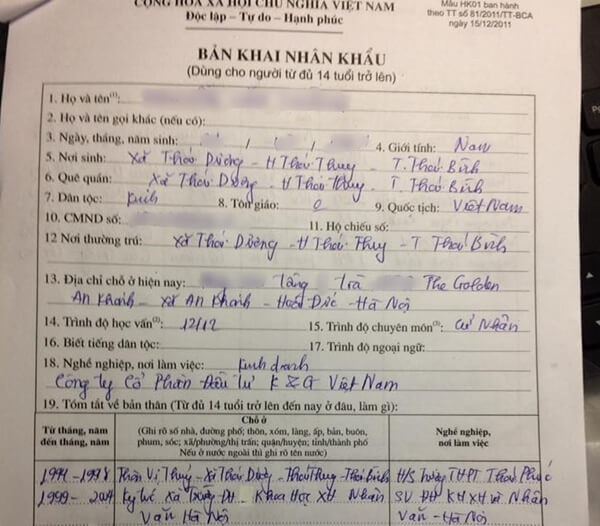 CỘNG HÒA XÃ HỘI CHỦ NGHĨA VIỆT NAM
Độc lập – Tự do – Hạnh phúc
Mẫu HK01 ban hành
theo TT số 81/2011/TT-BCA
ngày 15/12/2011
BẢN KHAI NHÂN KHẨU
(Dùng cho người từ đủ 14 tuổi trở lên)
1. Họ và tên(1):
2. Họ và tên gọi khác (nếu có):
3. Ngày, tháng, năm sinh: / / 4. Giới tính: Nam
5. Nơi sinh: Xã Thái Dương - H Thái Thụy - T. Thái Bình
6. Quê quán: Xã Thái Dương - H Thái Thụy - T Thái Bình
7. Dân tộc: Kinh 8. Tôn giáo: 0 9. Quốc tịch: Việt Nam
10. CMND số: 11. Hộ chiếu số:
12 Nơi thường trú: Xã Thái Dương - H Thái Thụy - T Thái Bình
13. Địa chỉ chỗ ở hiện nay: Tầng The Golden
An Khánh - xã An Khánh - Hoài Đức - Hà Nội
14. Trình độ học vấn(2): 12/12 15. Trình độ chuyên môn(3): Cử Nhân
16. Biết tiếng dân tộc: 17. Trình độ ngoại ngữ:
18. Nghề nghiệp, nơi làm việc: Kinh doanh
Công ty Cổ Phần Đầu Tư K&G Việt Nam
19. Tóm tắt về bản thân (Từ đủ 14 tuổi trở lên đến nay ở đâu, làm gì):
Từ tháng, năm đến tháng, năm
Chỗ ở
(Ghi rõ số nhà, đường phố; thôn, xóm, làng, ấp, bản, buôn,
phum, sóc; xã/phường/thị trấn; quận/huyện; tỉnh/thành phố
Nếu ở nước ngoài thì ghi rõ tên nước)
Nghề nghiệp,
nơi làm việc
1994 - 1998 Thôn Vị Thủy - Xã Thái Dương - Thái Thụy - Thái Bình H/S Trường THPT Thái Phúc
1999 - Ký túc xá Trường ĐH Khoa Học XH Nhân SV ĐH KHXH và Nhân
Văn Hà Nội Văn - Hà Nội